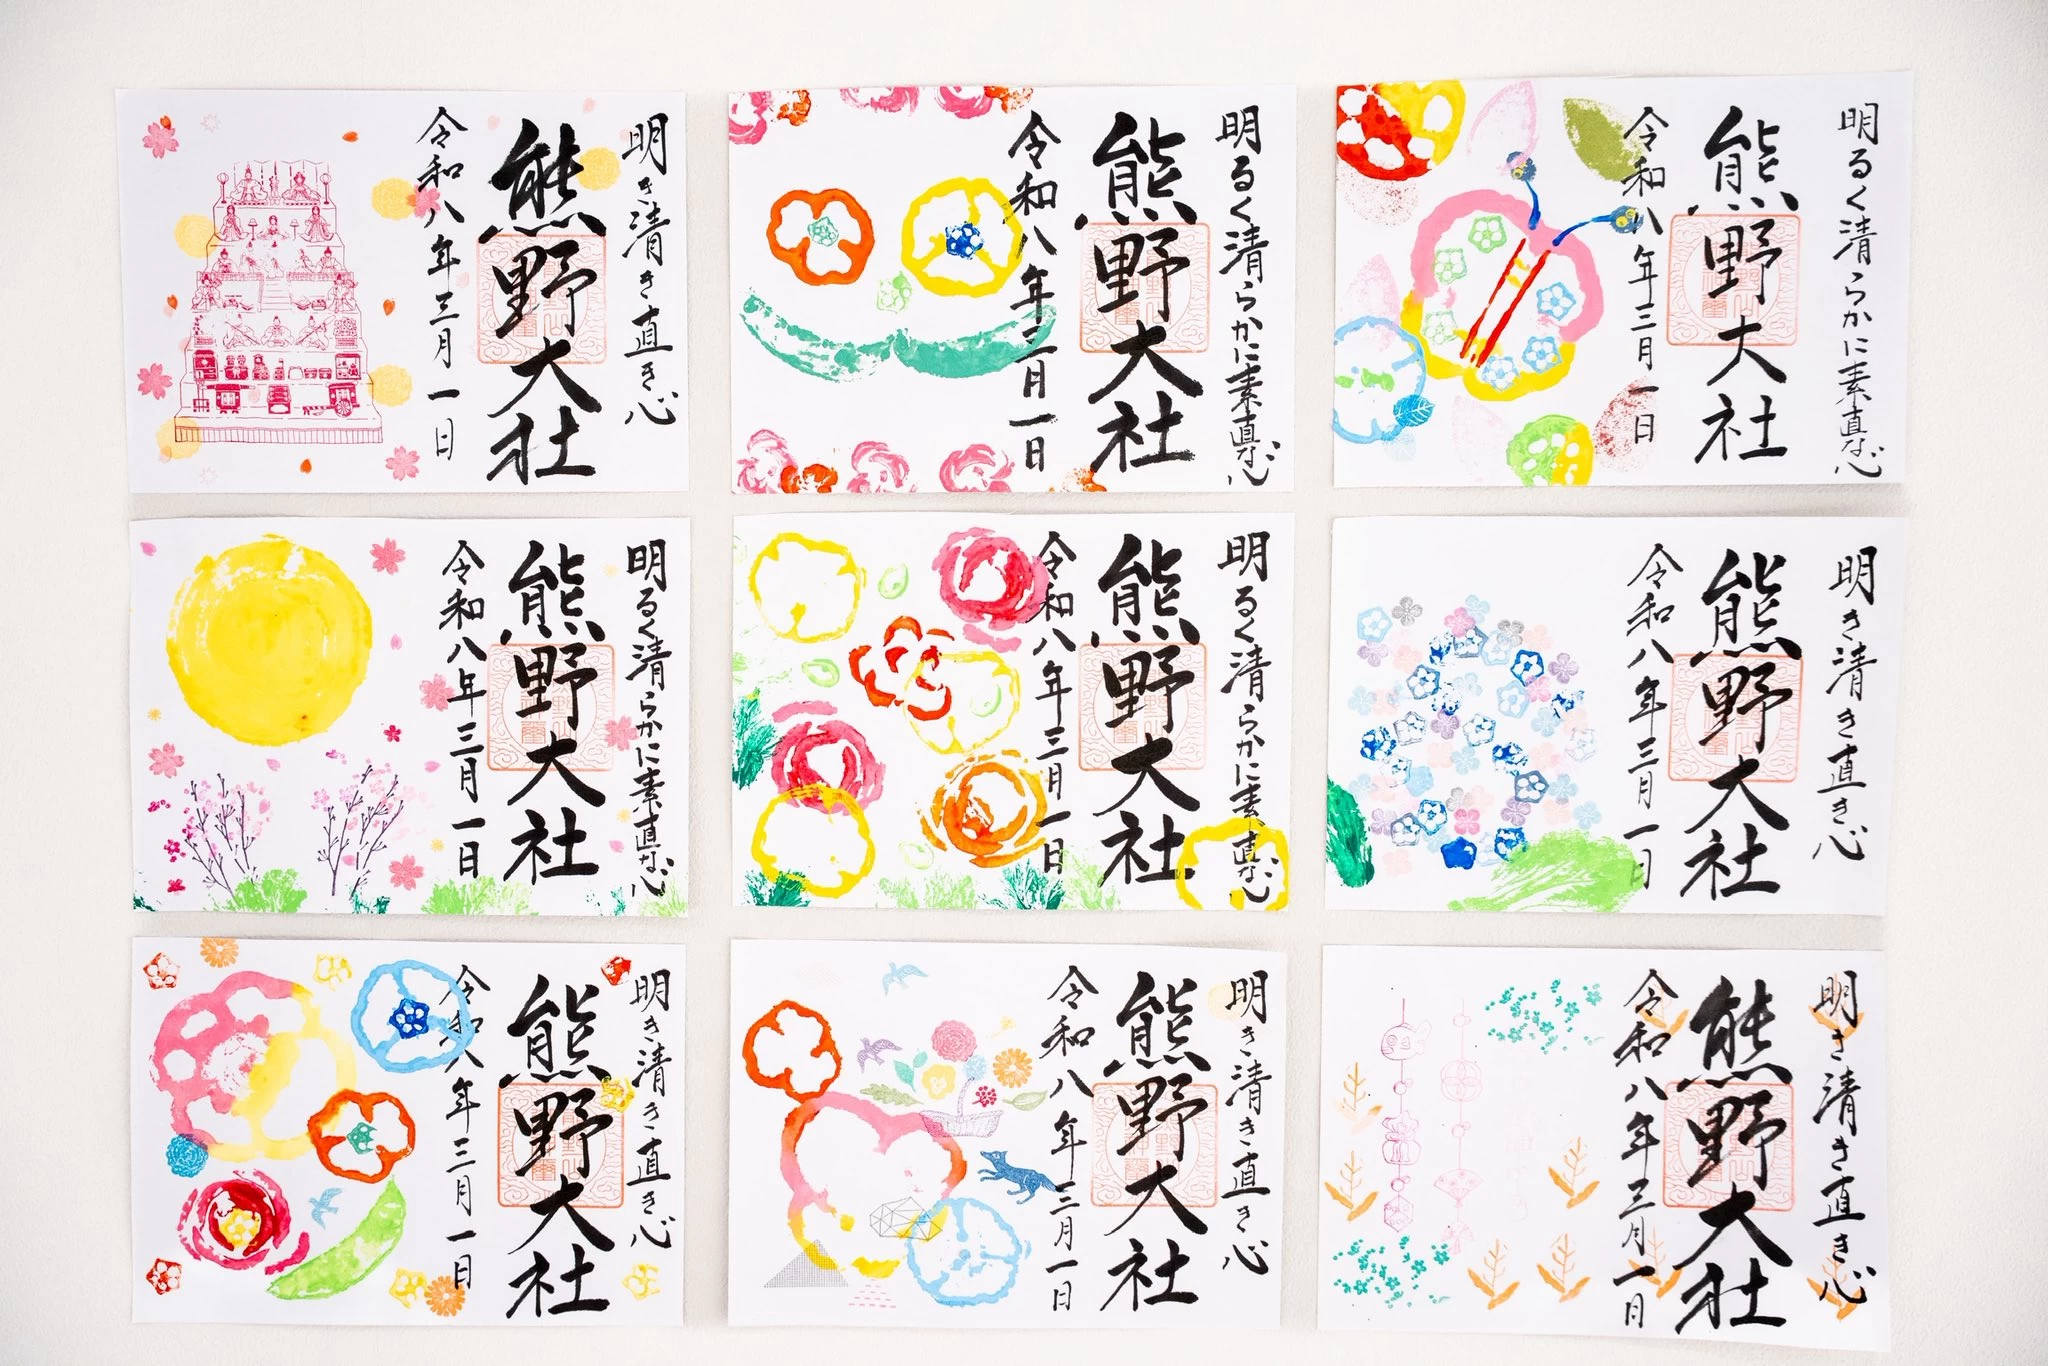 明き清き直き心
熊野大社
令和八年三月一日
明るく清らかに素直な心
熊野大社
令和八年三月一日
明るく清らかに素直な心
熊野大社
令和八年三月一日
明るく清らかに素直な心
熊野大社
令和八年三月一日
明るく清らかに素直な心
熊野大社
令和八年三月一日
明き清き直き心
熊野大社
令和八年三月一日
明き清き直き心
熊野大社
令和八年三月一日
明き清き直き心
熊野大社
令和八年三月一日
明き清き直き心
熊野大社
令和八年三月一日